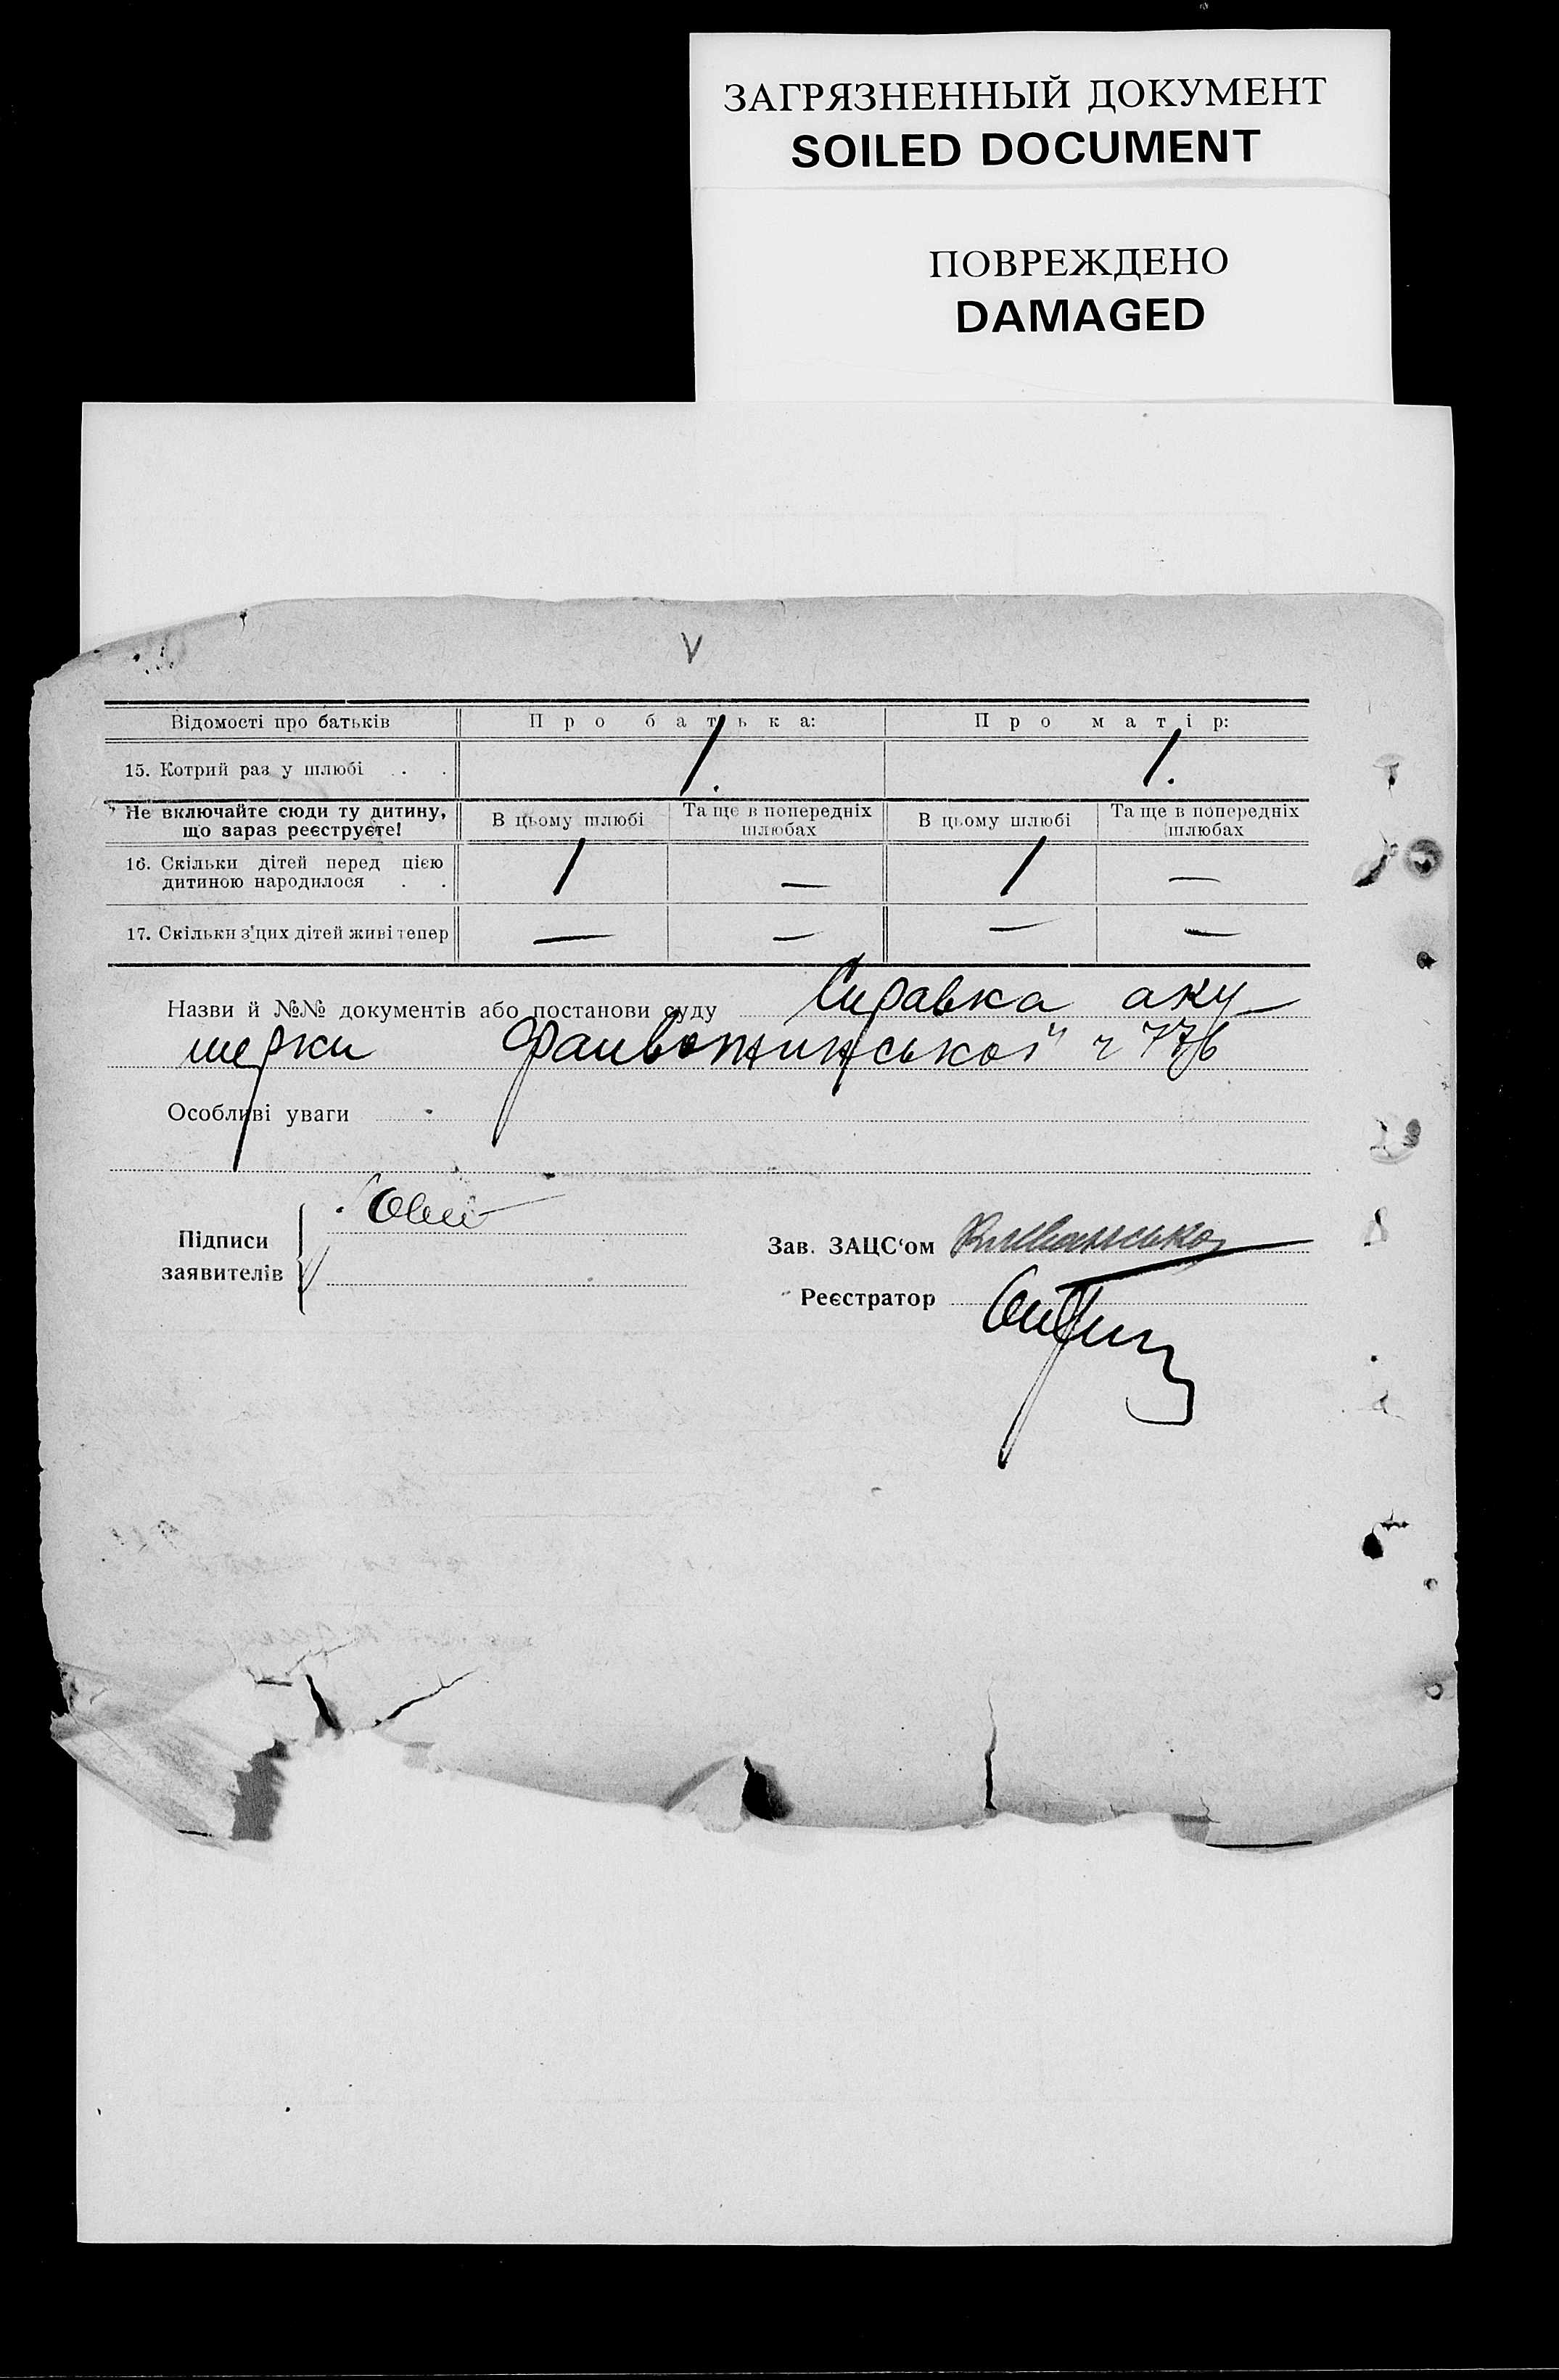 ЗАГРЯЗНЕННЫЙ ДОКУМЕНТ
SOILED DOCUMENT
ПОВРЕЖДЕНО
DAMAGED
V
Відомості про батьків Про батька: Про матір:
15. Котрий раз у шлюбі . . 1. 1.
Не включайте сюди ту дитину, що зараз реєструєте! В цьому шлюбі Та ще в попередніх шлюбах В цьому шлюбі Та ще в попередніх шлюбах
16. Скільки дітей перед цією дитиною народилося . . 1 — 1 —
17. Скільки з'цих дітей живі тепер — — — —
Назви й №№ документів або постанови суду Справка аку-
шерки ч 776
Особливі уваги
Підписи заявителів
Зав. ЗАЦС'ом
Реєстратор